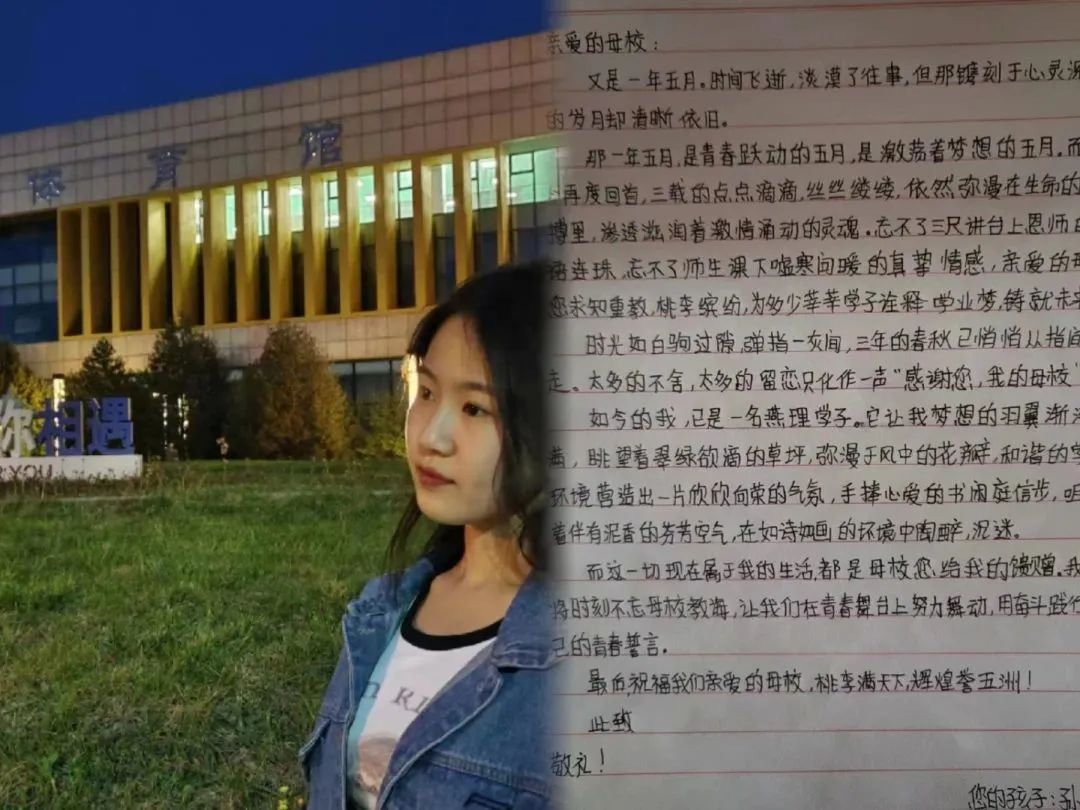 体育馆
你相遇
YOU
亲爱的母校：
又是一年五月。时间飞逝，淡漠了往事，但那镌刻于心灵深
的岁月却清晰依旧。
那一年五月，是青春跃动的五月，是激荡着梦想的五月。而
再度回首，三载的点点滴滴，丝丝缕缕，依然弥漫在生命的
博里，渗透滋润着激情涌动的灵魂。忘不了三尺讲台上恩师
语连珠，忘不了师生课下嘘寒问暖的真挚情感，亲爱的母
您求知重教，桃李缤纷，为多少莘莘学子诠释学业梦，铸就未来
时光如白驹过隙，弹指一灰间，三年的春秋已悄悄从指间
走。太多的不舍，太多的留恋只化作一声“感谢您，我的母校”
如今的我，已是一名燕理学子。它让我梦想的羽翼渐渐
满，眺望着翠绿欲滴的草坪，弥漫于风中的花瓣，和谐的
环境营造出一片欣欣向荣的气氛，手捧心爱的书闲庭信步，咀
着伴有泥香的芬芳空气，在如诗如画的环境中陶醉，沉迷。
而这一切现在属于我的生活，都是母校您给我的馈赠。我
将时刻不忘母校教诲，让我们在青春舞台上努力舞动，用奋斗践行
己的青春誓言。
最后，祝福我们亲爱的母校，桃李满天下，辉煌誉五洲！
此致
敬礼！
您的孩子：孔